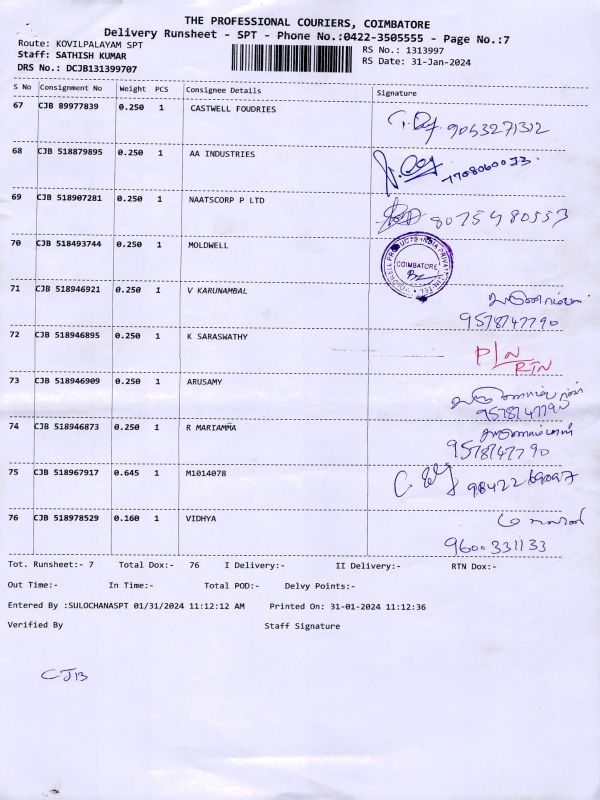 THE PROFESSIONAL COURIERS, COIMBATORE
Delivery Runsheet - SPT - Phone No.:0422-3505555 - Page No.:7
Route: KOVILPALAYAM SPT RS No.: 1313997
Staff: SATHISH KUMAR RS Date: 31-Jan-2024
DRS No.: DCJB131399707
S No Consignment No Weight PCS Consignee Details Signature
67 CJB 89977839 0.250 1 CASTWELL FOUDRIES 9053271312
68 CJB 518879895 0.250 1 AA INDUSTRIES
69 CJB 518907281 0.250 1 NAATSCORP P LTD 8075480553
70 CJB 518493744 0.250 1 MOLDWELL COIMBATORE
71 CJB 518946921 0.250 1 V KARUNAMBAL
9578747790
72 CJB 518946895 0.250 1 K SARASWATHY P/N
RTN
73 CJB 518946909 0.250 1 ARUSAMY
9578747790
74 CJB 518946873 0.250 1 R MARIAMMA
9578747790
75 CJB 518967917 0.645 1 M1014078
76 CJB 518978529 0.160 1 VIDHYA
9600331133
Tot. Runsheet:- 7 Total Dox:- 76 I Delivery:- II Delivery:- RTN Dox:-
Out Time:- In Time:- Total POD:- Delvy Points:-
Entered By :SULOCHANASPT 01/31/2024 11:12:12 AM Printed On: 31-01-2024 11:12:36
Verified By Staff Signature
CJB